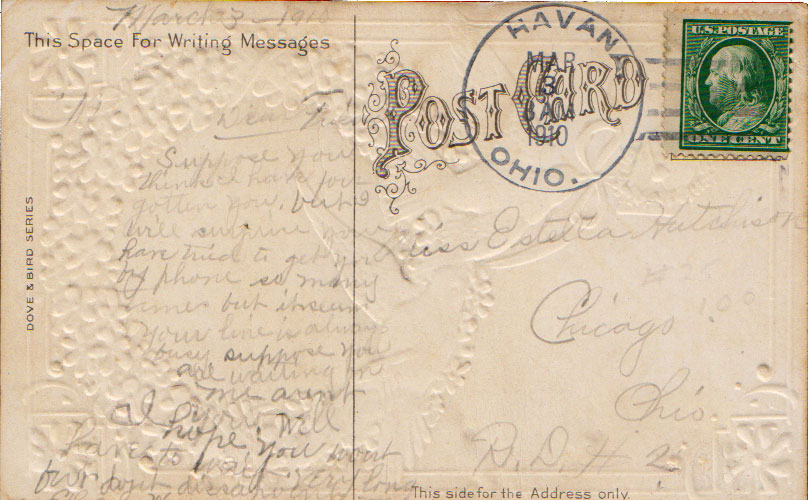 March 3 - 1910
This Space For Writing Messages
Dear Frie
Suppose you
think I have for
gotten you, but I
will surprise you
have tried to get you
by phone so many
times but it seem
your line is always
busy suppose you
are waiting on
me arent
you. Well
I hope you wont
have to wait
but dont very long
DOVE & BIRD SERIES
POST CARD
HAVANA
MAR
3
1910
OHIO.
U.S. POSTAGE
ONE CENT
Miss Estella Hutchison
Chicago
Ohio.
R. D. # 2
This side for the Address only.